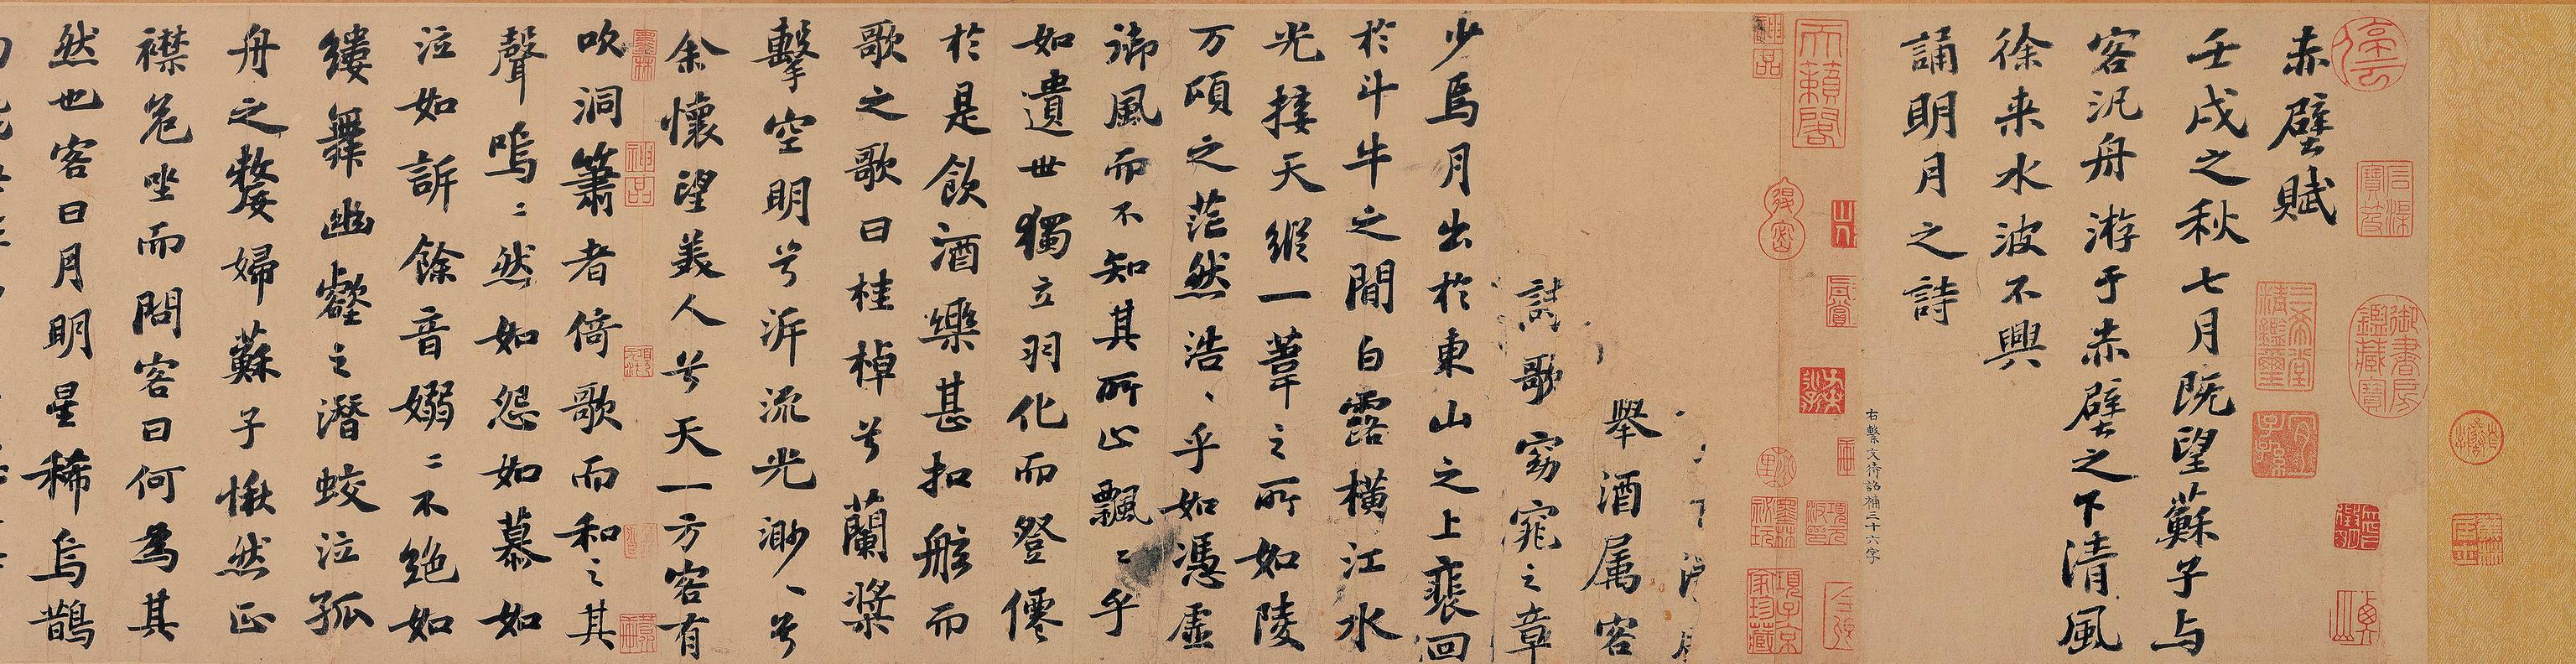 赤壁賦
壬戌之秋七月既望蘇子与
客汎舟游于赤壁之下清風
徐来水波不興
誦明月之詩
右繫文待詔補三十六字
舉酒属客
詩歌窈窕之章
少焉月出於東山之上裴回
於斗牛之間白露橫江水
光接天縱一葦之所如陵
万頃之茫然浩、乎如憑虛
御風而不知其所止飄〻乎
如遺世獨立羽化而登僊
於是飲酒樂甚扣舷而
歌之歌曰桂棹兮蘭槳
擊空明兮泝流光渺、兮
余懷望美人兮天一方客有
吹洞簫者倚歌而和之其
聲嗚〻然如怨如慕如
泣如訴餘音嫋〻不絕如
縷舞幽壑之潛蛟泣孤
舟之嫠婦蘇子愀然正
襟危坐而問客曰何為其
然也客曰月明星稀烏鵲